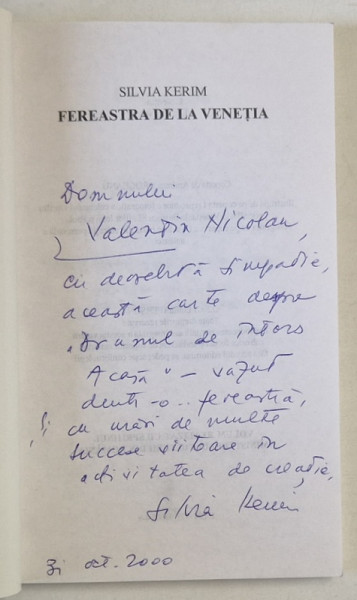 SILVIA KERIM
FEREASTRA DE LA VENEȚIA
Domnului
Valentin Nicolau,
cu deosebită simpatie,
această carte despre
„Drumul de întors
Acasă” – văzut
dintr-o.. fereastră,
Și cu urări de multe
succese viitoare în
activitatea de creație,
Silvia Kerim
31 oct. 2000